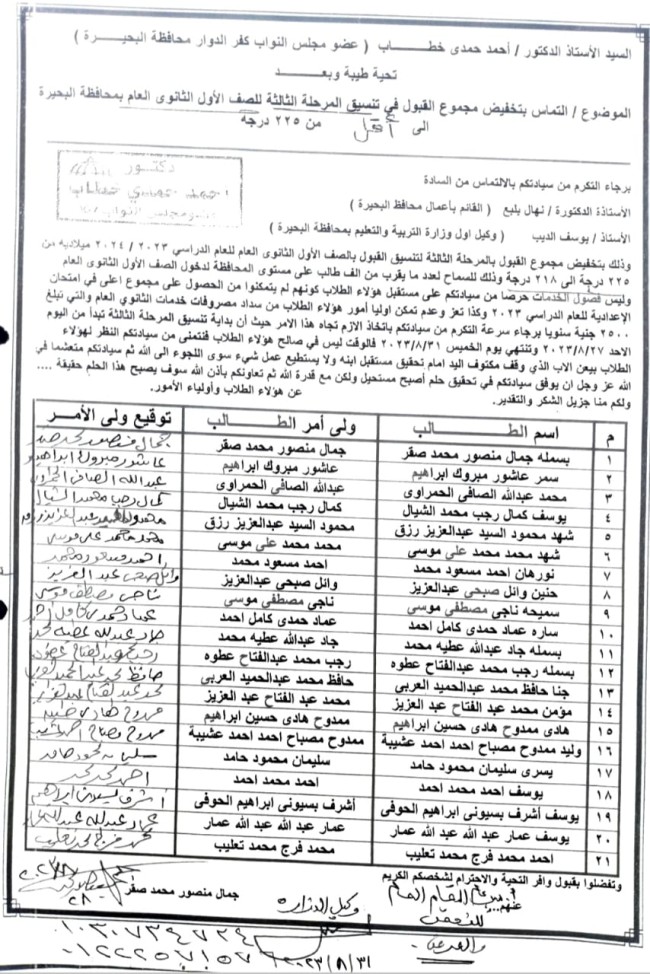 السيد الأستاذ الدكتور / أحمد حمدى خطـــــاب ( عضو مجلس النواب كفر الدوار محافظة البحيـــرة )
تحية طيبة وبعـــــد
الموضوع / التماس بتخفيض مجموع القبول في تنسيق المرحلة الثالثة للصف الأول الثانوى العام بمحافظة البحيرة
الى أقل من ٢٢٥ درجة
دكتـــور
احمد حمدي خطاب
عضو مجلس النواب
برجاء التكرم من سيادتكم بالالتماس من السادة
الأستاذة الدكتورة / نهال بلبع ( القائم بأعمال محافظ البحيرة )
الأستاذ / يوسف الديب ( وكيل اول وزارة التربية والتعليم بمحافظة البحيرة )
وذلك بتخفيض مجموع القبول بالمرحلة الثالثة لتنسيق القبول بالصف الأول الثانوى العام للعام الدراسي ٢٠٢٣ / ٢٠٢٤ ميلاديه من
٢٢٥ درجة الى ٢١٨ درجة وذلك للسماح لعدد ما يقرب من الف طالب على مستوى المحافظة لدخول الصف الأول الثانوى العام
وليس فصول الخدمات حرصا من سيادتكم على مستقبل هؤلاء الطلاب كونهم لم يتمكنوا من الحصول على مجموع اعلى في امتحان
الإعدادية للعام الدراسي ٢٠٢٣ وكذا تعز وعدم تمكن اوليا أمور هؤلاء الطلاب من سداد مصروفات خدمات الثانوي العام والتي تبلغ
٢٥٠٠ جنية سنويا برجاء سرعة التكرم من سيادتكم باتخاذ الازم تجاه هذا الامر حيث أن بداية تنسيق المرحلة الثالثة تبدأ من اليوم
الاحد ٢٠٢٣/٨/٢٧ وتنتهي يوم الخميس ٢٠٢٣/٨/٣١ فالوقت ليس في صالح هؤلاء الطلاب فنتمنى من سيادتكم النظر لهؤلاء
الطلاب بيعن الاب الذي وقف مكتوف اليد امام تحقيق مستقبل ابنه ولا يستطيع عمل شيء سوى اللجوء الى الله ثم سيادتكم متعشما في
الله عز وجل ان يوفق سيادتكم في تحقيق حلم أصبح مستحيل ولكن مع قدرة الله ثم تعاونكم بأذن الله سوف يصبح هذا الحلم حقيقة ....
ولكم منا جزيل الشكر والتقدير. عن هؤلاء الطلاب وأولياء الأمور.
م اسم الطـــــالب ولى أمر الطـــــالب توقيع ولى الأمر
١ بسمله جمال منصور محمد صقر جمال منصور محمد صقر جمال منصور محمد صقر
٢ سمر عاشور مبروك ابراهيم عاشور مبروك ابراهيم عاشور مبروك ابراهيم
٣ محمد عبدالله الصافي الحمراوى عبدالله الصافي الحمراوى عبدالله الصافي
٤ يوسف كمال رجب محمد الشيال كمال رجب محمد الشيال كمال رجب محمد الشيال
٥ شهد محمود السيد عبدالعزيز رزق محمود السيد عبدالعزيز رزق محمود السيد عبدالعزيز رزق
٦ شهد محمد محمد علي موسى محمد محمد علي موسى محمد محمد على موسى
٧ نورهان احمد مسعود محمد احمد مسعود محمد احمد مسعود محمد
٨ حنين وائل صبحي عبدالعزيز وائل صبحى عبدالعزيز وائل صبحى عبد العزيز
٩ سميحه ناجى مصطفي موسى ناجى مصطفي موسى ناجى مصطفى موسى
١٠ ساره عماد حمدى كامل احمد عماد حمدى كامل احمد عماد حمدى كامل احمد
١١ بسمله جاد عبدالله عطيه محمد جاد عبدالله عطيه محمد جاد عبدالله عطيه محمد
١٢ بسمله رجب محمد عبدالفتاح عطوه رجب محمد عبدالفتاح عطوه رجب محمد عبدالفتاح عطوه
١٣ جنا حافظ محمد عبدالحميد العربى حافظ محمد عبدالحميد العربى حافظ محمد عبدالحميد
١٤ مؤمن محمد عبد الفتاح عبد العزيز محمد عبد الفتاح عبد العزيز محمد عبد الفتاح عبد العزيز
١٥ هادى ممدوح هادى حسين ابراهيم ممدوح هادى حسين ابراهيم ممدوح هادى حسين
١٦ وليد ممدوح مصباح احمد احمد عشيبة ممدوح مصباح احمد احمد عشيبة ممدوح مصباح احمد
١٧ يسرى سليمان محمود حامد سليمان محمود حامد سليمان محمود حامد
١٨ يوسف احمد محمد احمد احمد محمد احمد احمد محمد
١٩ يوسف أشرف بسيونى ابراهيم الحوفى أشرف بسيونى ابراهيم الحوفى أشرف بسيونى ابراهيم
٢٠ يوسف عمار عبد الله عبد الله عمار عمار عبد الله عبد الله عمار عمار عبد الله عبد الله
٢١ احمد محمد فرج محمد تعليب محمد فرج محمد تعليب محمد فرج محمد تعليب
وتفضلوا بقبول وافر التحية والاحترام لشخصكم الكريم
عنهم... جمال منصور محمد صقر
وكيل الوزارة
٠١٠٣٠٧٣٤٧٣٤
٠١٢٢٢٥٧١٥٧
٢٠٢٣/٨/٣١